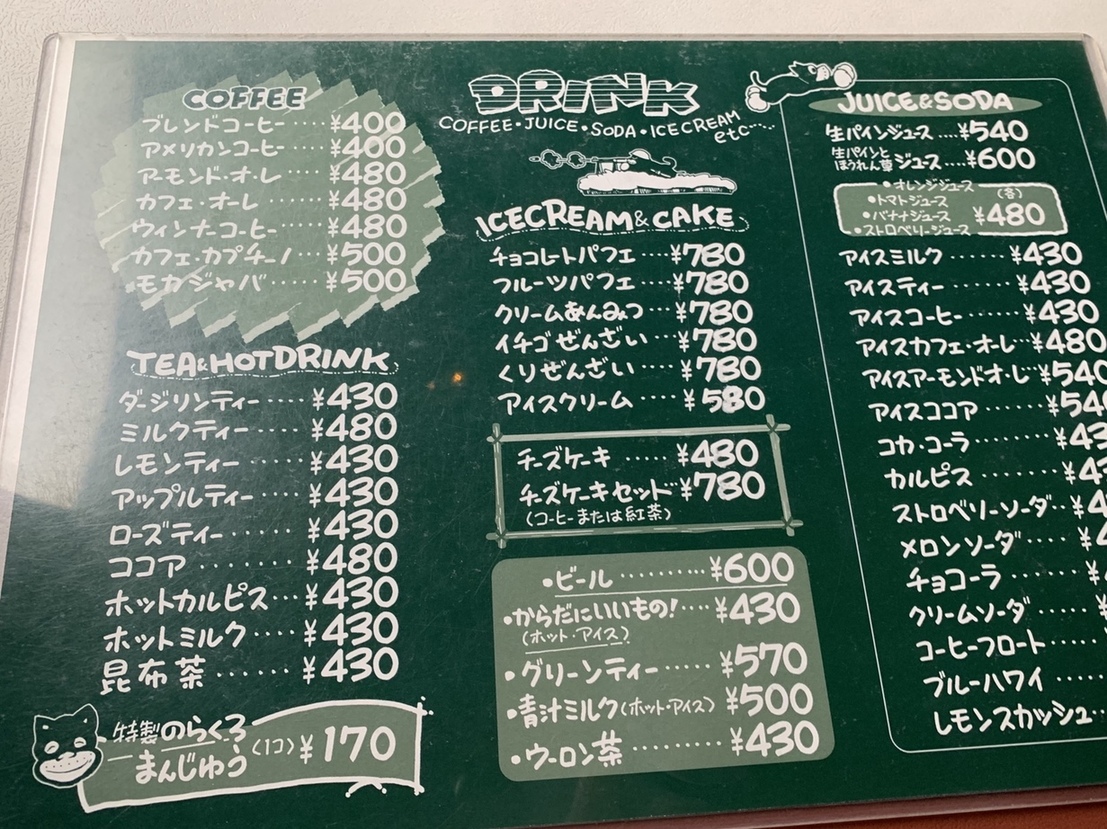 COFFEE
ブレンドコーヒー ････ ¥400
アメリカンコーヒー ････ ¥400
アーモンド・オ・レ ････ ¥480
カフェ・オーレ ････ ¥480
ウィンナーコーヒー ････ ¥480
カフェ・カプチーノ ････ ¥500
モカジャバ ････ ¥500
TEA&HOTDRINK
ダージリンティー ････ ¥430
ミルクティー ････ ¥480
レモンティー ････ ¥430
アップルティー ････ ¥430
ローズティー ････ ¥430
ココア ････････ ¥480
ホットカルピス ･･･ ¥430
ホットミルク ････ ¥430
昆布茶 ･･････ ¥430
特製のらくろ
まんじゅう (1コ) ¥170
DRINK
COFFEE・JUICE・SODA・ICECREAM
etc････
ICECREAM&CAKE
チョコレートパフェ ････ ¥780
フルーツパフェ ････ ¥780
クリームあんみつ ････ ¥780
イチゴぜんざい ････ ¥780
くりぜんざい ････ ¥780
アイスクリーム ････ ¥580
チーズケーキ ････ ¥480
チーズケーキセット ･･ ¥780
(コーヒーまたは紅茶)
・ビール ･･････････ ¥600
・からだにいいもの! ････ ¥430
(ホット・アイス)
・グリーンティー ･･････ ¥570
・青汁ミルク(ホット・アイス) ¥500
・ウーロン茶 ･･･････ ¥430
JUICE&SODA
生パインジュース ････ ¥540
生パインと
ほうれん草 ジュース ････ ¥600
・オレンジジュース
・トマトジュース (各)
・バナナジュース ¥480
・ストロベリージュース
アイスミルク ･･････ ¥430
アイスティー ･･････ ¥430
アイスコーヒー ････ ¥430
アイスカフェ・オ・レ ･･ ¥480
アイスアーモンドオ・レ ･･ ¥540
アイスココア ･･････ ¥54
コカ・コーラ ･･･････ ¥43
カルピス ････････ ¥4
ストロベリーソーダ ･･ ¥4
メロンソーダ ･････ ¥4
チョコーラ ･･････ ¥
クリームソーダ ････ ¥
コーヒーフロート ････
ブルーハワイ ････
レモンスカッシュ ･･